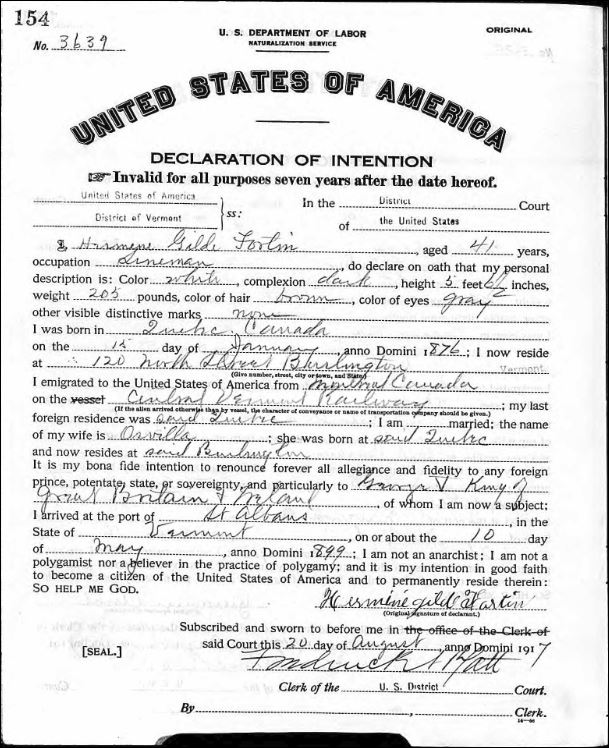 154
No. 3639
U. S. DEPARTMENT OF LABOR
NATURALIZATION SERVICE
ORIGINAL
UNITED STATES OF AMERICA
DECLARATION OF INTENTION
☞ Invalid for all purposes seven years after the date hereof.
United States of America
District of Vermont
ss:
In the District Court
of the United States
I, Gilde Fortin, aged 41 years,
occupation Lineman, do declare on oath that my personal
description is: Color white, complexion dark, height 5 feet 6½ inches,
weight 205 pounds, color of hair brown, color of eyes gray
other visible distinctive marks none
I was born in Quebec, Canada
on the 15 day of January, anno Domini 1876; I now reside
at 120 North Street Burlington Vermont
(Give number, street, city or town, and State)
I emigrated to the United States of America from Montreal Canada
on the vessel Central Vermont Railway; my last
(If the alien arrived otherwise than by vessel, the character of conveyance or name of transportation company should be given.)
foreign residence was said Quebec; I am married; the name
of my wife is Orvilla; she was born at said Quebec
and now resides at said Burlington
It is my bona fide intention to renounce forever all allegiance and fidelity to any foreign
prince, potentate, state, or sovereignty, and particularly to George V King of
Great Britain & Ireland, of whom I am now a subject;
I arrived at the port of St Albans, in the
State of Vermont, on or about the 10 day
of May, anno Domini 1899; I am not an anarchist; I am not a
polygamist nor a believer in the practice of polygamy; and it is my intention in good faith
to become a citizen of the United States of America and to permanently reside therein:
SO HELP ME GOD.
Hermine gild Fartin
(Original signature of declarant.)
Subscribed and sworn to before me in the office of the Clerk of
said Court this 20 day of August, anno Domini 1917
[SEAL.]
Platt
Clerk of the U. S. District Court.
By Clerk.